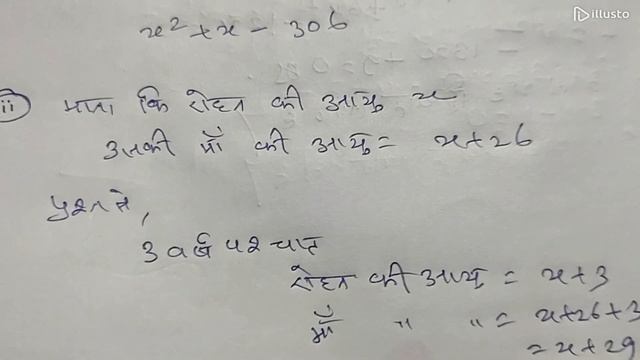 illusto
x² + x - 306
ii माना कि रोहन की आयु x
उसकी माँ की आयु = x+26
प्रश्न से,
3 वर्ष पश्चात
रोहन की आयु = x+3
माँ " " = x+26+3
= x+29